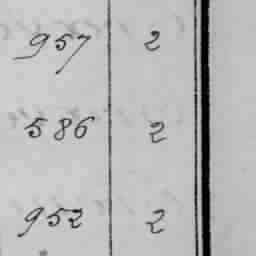 957 2
586 2
952 2